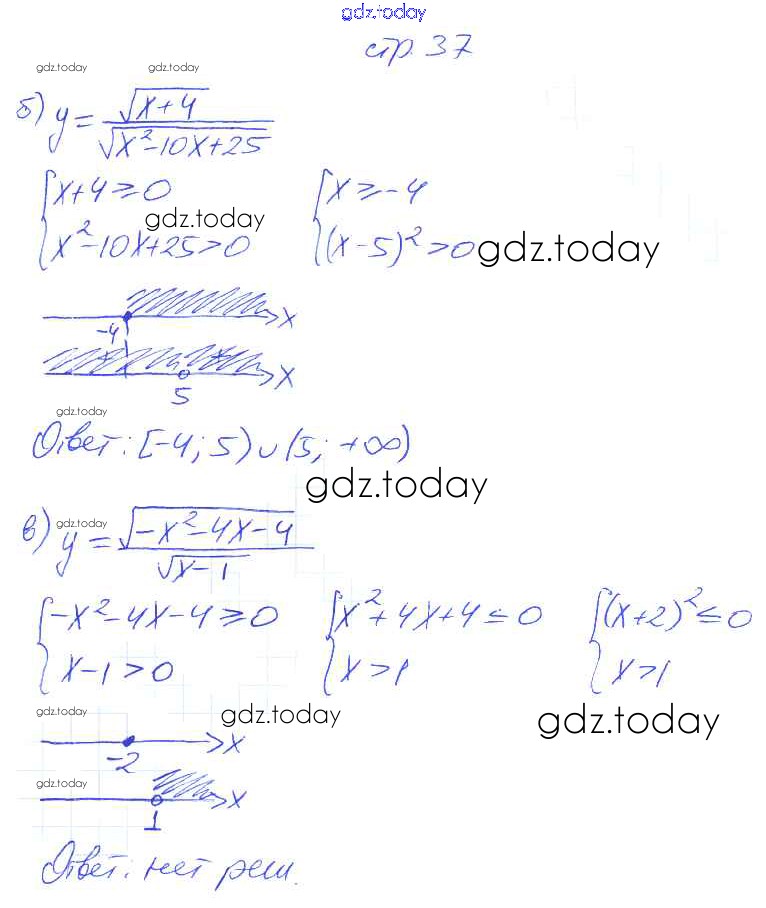 gdz.today
стр. 37
gdz.today gdz.today
б) y = √(x+4) / √(x²-10x+25)
{ x+4 ≥ 0 { x ≥ -4
gdz.today
{ x²-10x+25 > 0 { (x-5)² > 0 gdz.today
-4 x
5 x
gdz.today
Ответ: [-4; 5) ∪ (5; +∞)
gdz.today
в) gdz.today y = √(-x²-4x-4) / √(x-1)
{ -x²-4x-4 ≥ 0 { x²+4x+4 ≤ 0 { (x+2)² ≤ 0
{ x-1 > 0 { x > 1 { x > 1
gdz.today gdz.today gdz.today
-2 x
gdz.today
1 x
Ответ: нет реш.